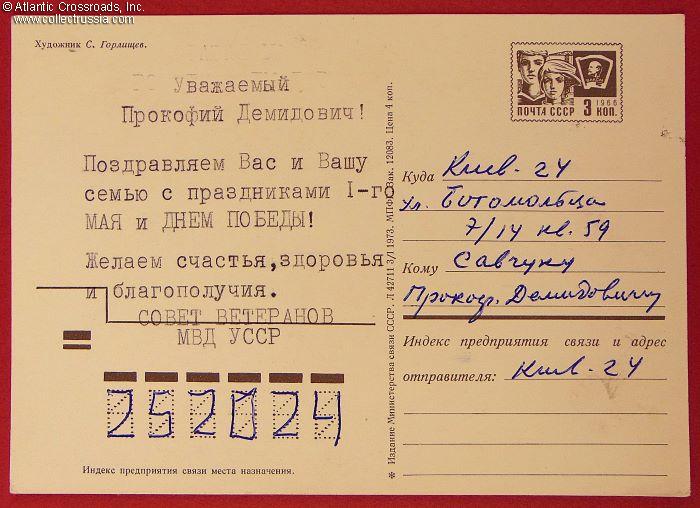 © Atlantic Crossroads, Inc.
www.collectrussia.com
Художник С. Горлищев.
Уважаемый
Прокофий Демидович!
Поздравляем Вас и Вашу
семью с праздниками I-го
МАЯ и ДНЕМ ПОБЕДЫ!
Желаем счастья, здоровья
и благополучия.
СОВЕТ ВЕТЕРАНОВ
МВД УССР
252024
Индекс предприятия связи места назначения.
✻ Издание Министерства связи СССР. Л 42711 3/I 1973. МПФГ. Зак. 12083. Цена 4 коп.
1966
ПОЧТА СССР 3 КОП.
Куда Киев-24
ул. Богомольца
7/14 кв. 59
Кому Савчуку
Прокоф. Демидовичу
Индекс предприятия связи и адрес
отправителя: Киев-24